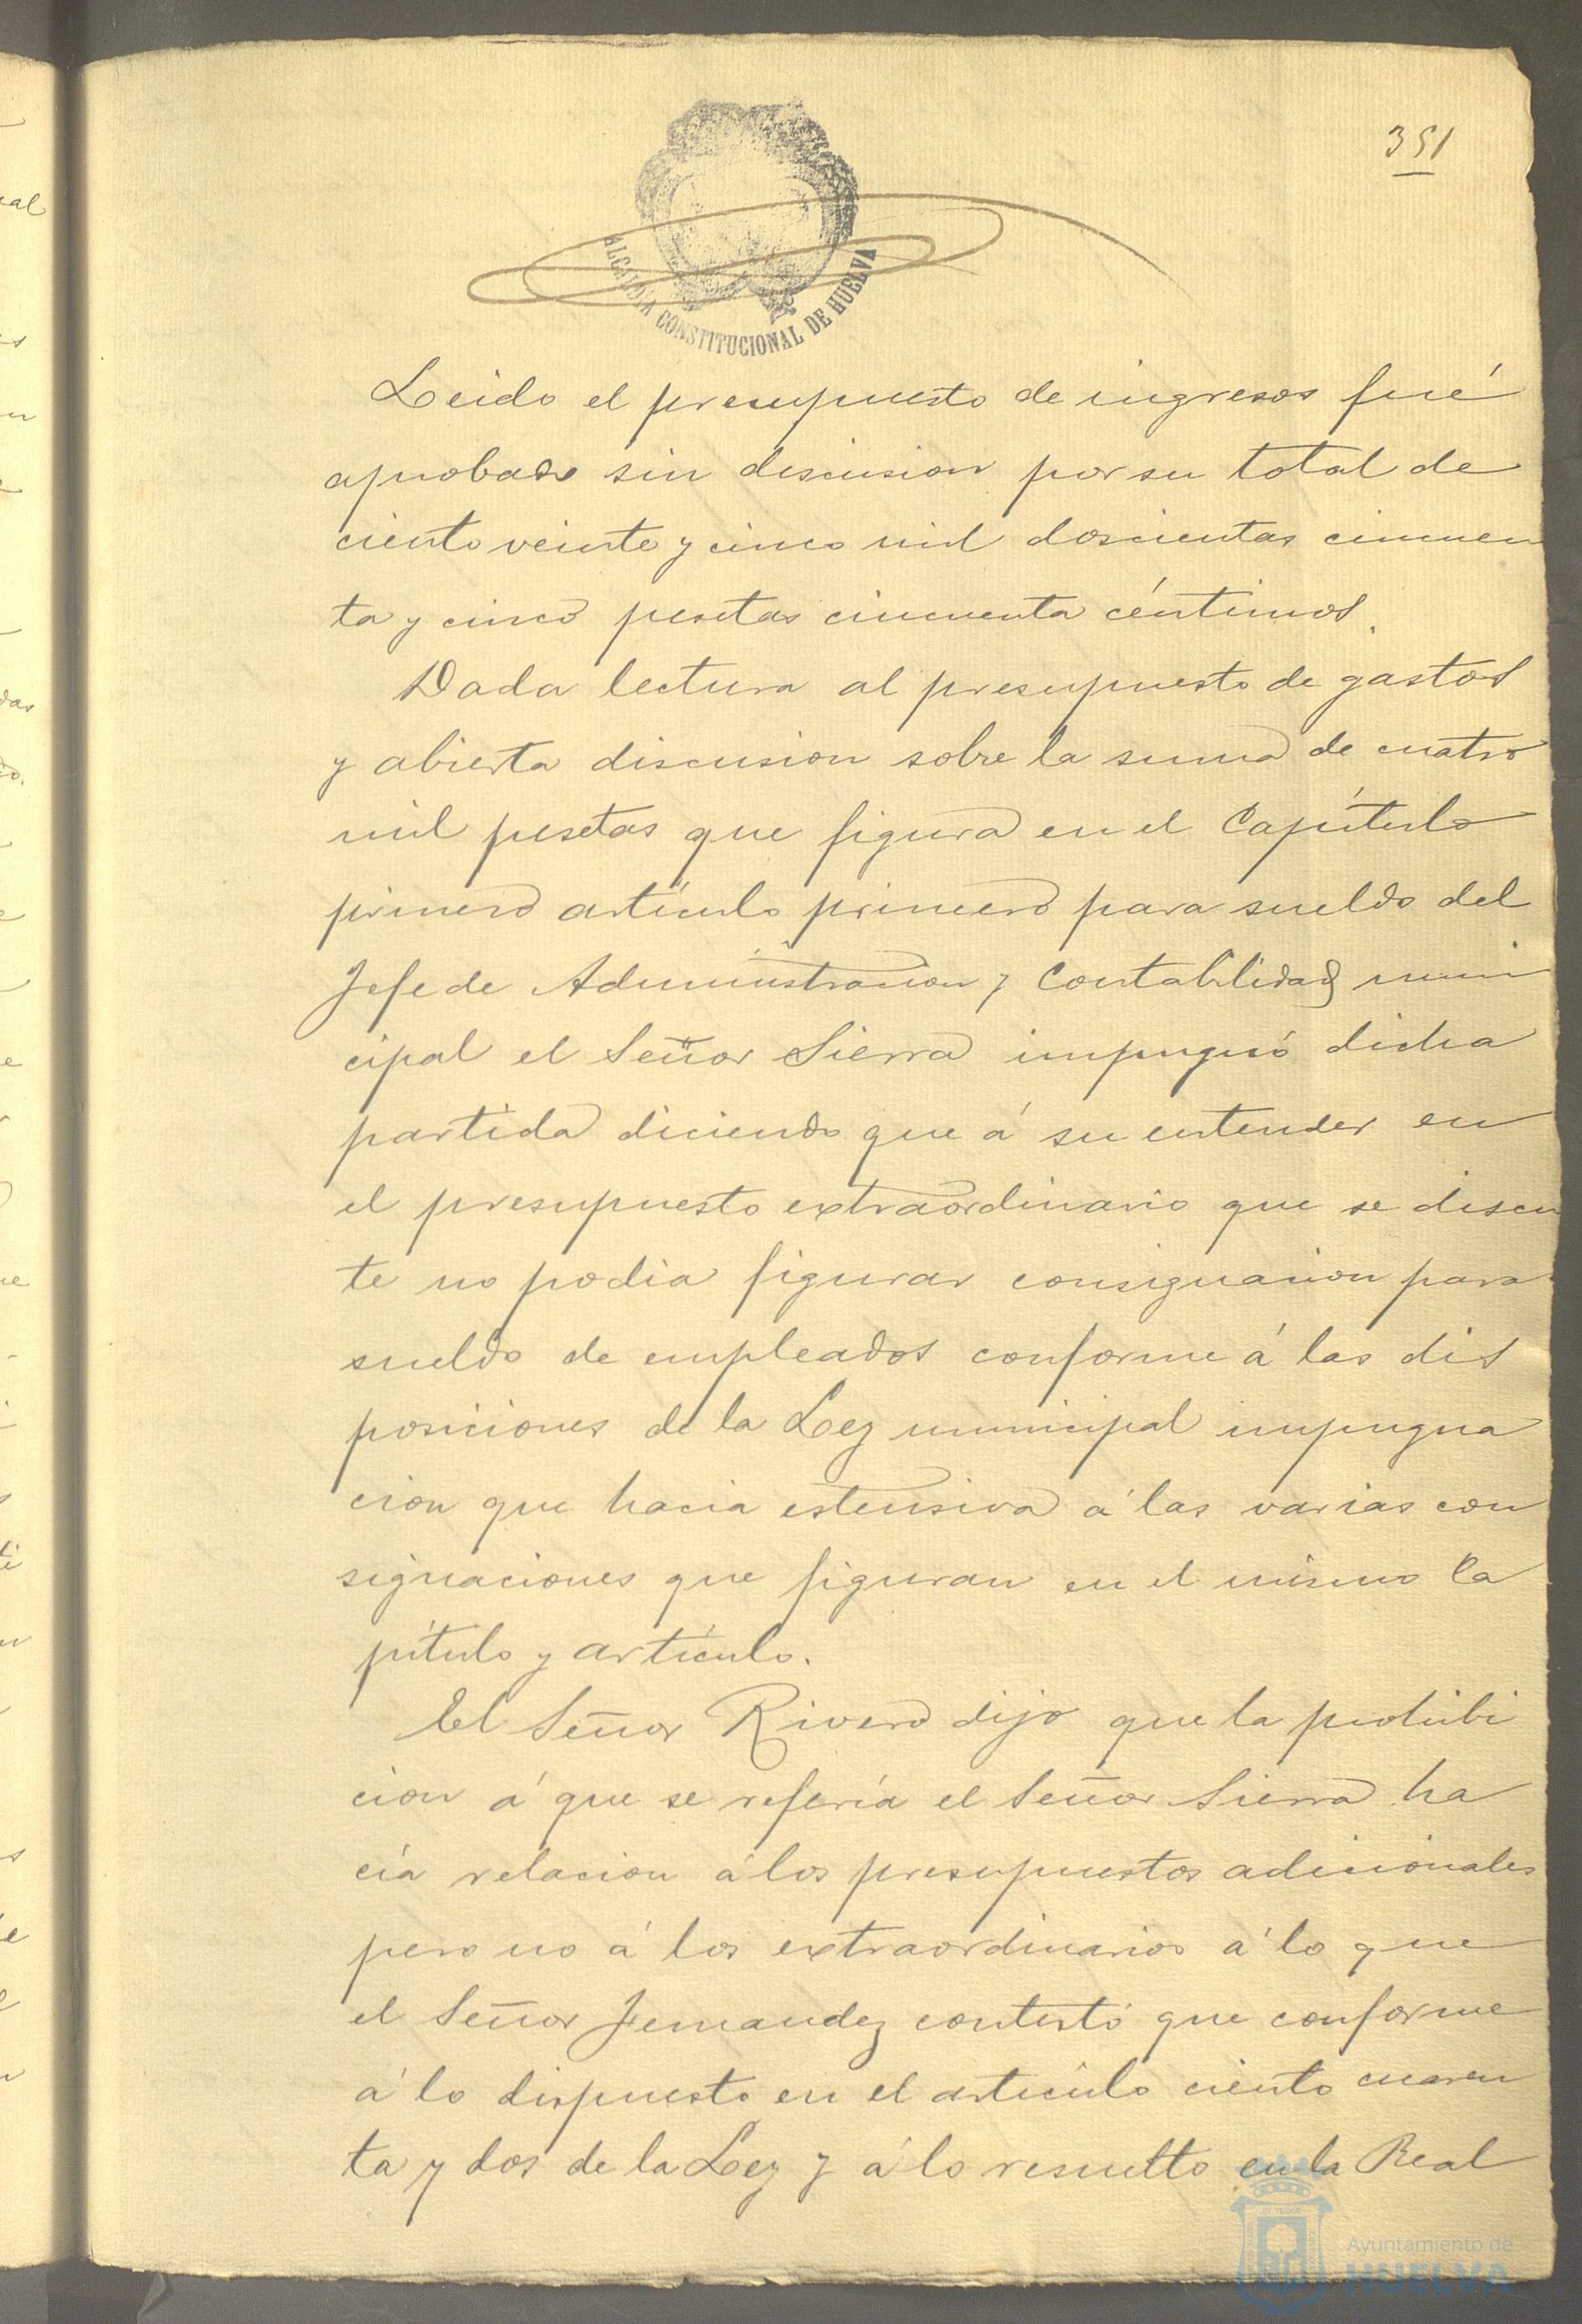 351
ALCALDÍA CONSTITUCIONAL DE HUELVA
Leido el presupuesto de ingresos fué
aprobado sin discusion por su total de
ciento veinte y cinco mil doscientas cincuen
ta y cinco pesetas cincuenta céntimos.
Dada lectura al presupuesto de gastos
y abierta discusion sobre la suma de cuatro
mil pesetas que figura en el Capítulo
primero artículo primero para sueldo del
Jefe de Administracion y Contabilidad muni
cipal el Señor Sierra impugnó dicha
partida diciendo que á su entender en
el presupuesto extraordinario que se discu
te no podia figurar consignacion para
sueldo de empleados conforme á las dis
posiciones de la Ley municipal impugna
cion que hacia estensiva á las varias con
signaciones que figuran en el mismo Ca
pítulo y artículo.
El Señor Rivero dijo que la prohibi
cion á que se refería el Señor Sierra ha
cía relacion á los presupuestos adicionales
pero no á los extraordinarios á lo que
el Señor Fernandez contestó que conforme
á lo dispuesto en el artículo ciento cuaren
ta y dos de la Ley y á lo resuelto en la Real
Ayuntamiento de
HUELVA